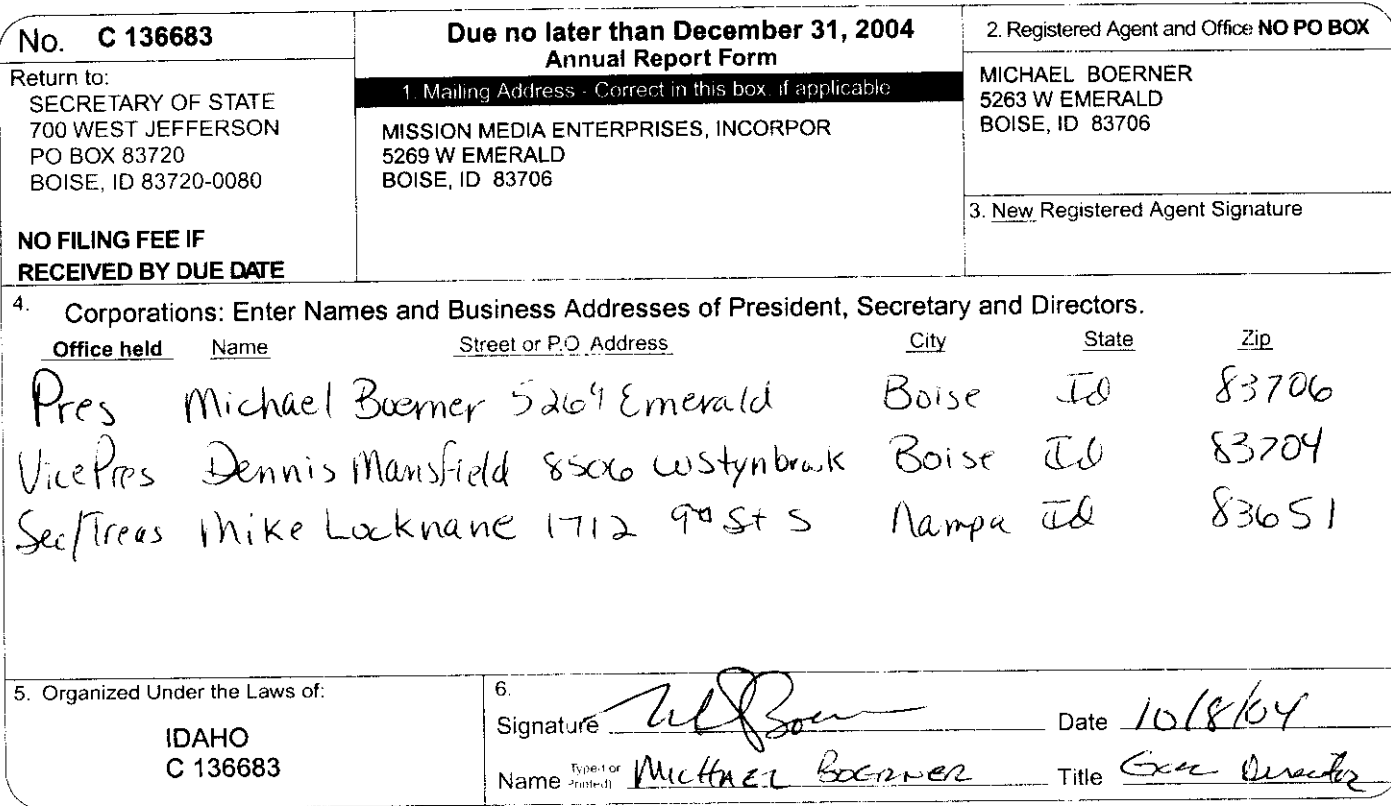 No. C 136683
Return to:
SECRETARY OF STATE
700 WEST JEFFERSON
PO BOX 83720
BOISE, ID 83720-0080
NO FILING FEE IF
RECEIVED BY DUE DATE
Due no later than December 31, 2004
Annual Report Form
1. Mailing Address - Correct in this box, if applicable
MISSION MEDIA ENTERPRISES, INCORPOR
5269 W EMERALD
BOISE, ID 83706
2. Registered Agent and Office NO PO BOX
MICHAEL BOERNER
5263 W EMERALD
BOISE, ID 83706
3. New Registered Agent Signature
4. Corporations: Enter Names and Business Addresses of President, Secretary and Directors.
Office held Name Street or P.O. Address City State Zip
Pres Michael Boerner 5269 Emerald Boise Id 83706
Vice Pres Dennis Mansfield 8506 W Boise Id 83704
Sec/Treas Mike Locknane 1712 9th St S Nampa Id 83651
5. Organized Under the Laws of:
IDAHO
C 136683
6.
Signature
Date 10/8/04
Name (Typed or Printed) MICHAEL BOERNER Title Gen Director